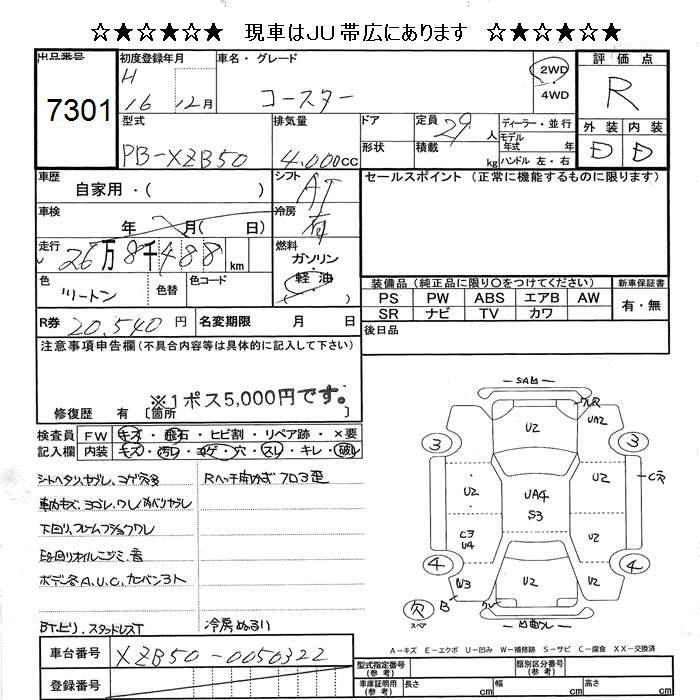 ☆★☆★☆★ 現車はJU帯広にあります ☆★☆★☆★
出品番号
7301
初度登録年月
H 16 12月
車名・グレード
コースター
2WD
4WD
評価点
R
外装 内装
D D
型式
PB-XZB50
排気量
4.000cc
ドア
形状
定員 29 人
積載 kg
ディーラー・並行
モデル年式 年
ハンドル 左・右
車歴
自家用・( )
シフト
AT
セールスポイント (正常に機能するものに限ります)
車検
年 月( 日)
冷房
有
走行
26万8千488 km
燃料
ガソリン
軽油
色
ツートン
色替
色コード
装備品 (純正品に限り○をつけてください)
新車保証書
PS PW ABS エアB AW
有・無
SR ナビ TV カワ
R券 20.540 円
名変期限 月 日
後日品
注意事項申告欄(不具合内容等は具体的に記入して下さい)
※1ポス5,000円です。
修復歴 有 〔箇所
検査員 FW キズ・飛石・ヒビ割・リペア跡・×要
記入欄 内装 キズ・汚レ・コゲ・穴・スレ・キレ・破レ
シートヘタリ、ヤブレ、コゲ穴多
下回り、フレームブッシュワレ
E/g回りオイルニジミ、音
ボデー各A.U.C.
冷房ぬるい
車台番号 XZB50-0050322
登録番号
U2
UA2
3
3
U2
UA4
S3
U2
C穴
C3
U4
U2
4
4
W3
B
U2
U2
欠
スペア
A-キズ E-エクボ U-凹み W-補修跡 S-サビ C-腐食 XX-交換済
型式指定番号
(参考)
類別区分番号
(参考)
車庫証明用
(参考)
長さ cm
幅 cm
高さ cm